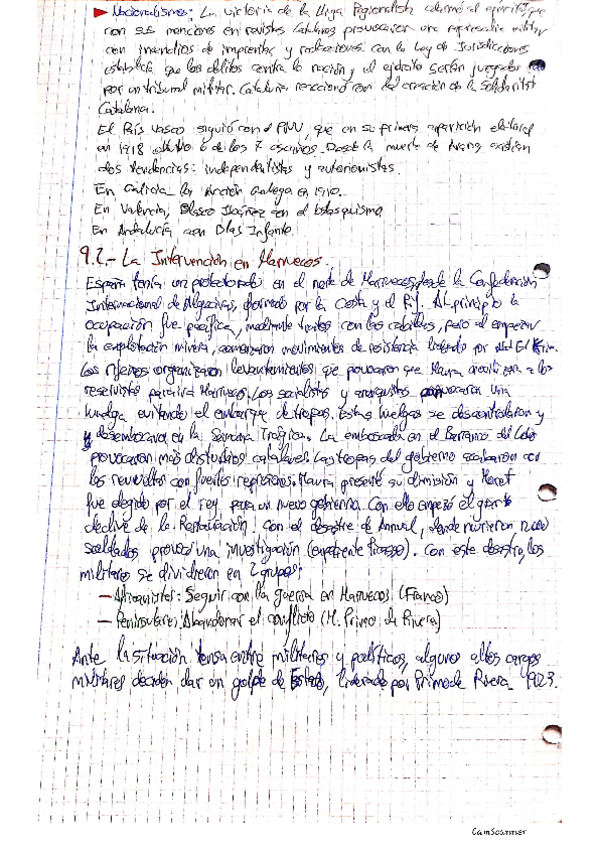 Nacionalismos: La victoria de la Lliga Regionalista alarmó al ejército, que
con sus menciones en revistas Catalanas provocaron una represalia militar
con incendios de imprentas y redacciones con la Ley de Jurisdicciones
establecía que los delitos contra la nación y el ejercito serían juzgados
por un tribunal militar. Cataluña reaccionó con la creación de la Solidaritat
Catalana.
El País Vasco siguió con el PNV, que en su primera aparición electoral
en 1918 obtuvo 6 de los 7 escaños. Desde la muerte de Arana existían
dos tendencias: independentistas y autonomistas.
En Galicia la Acción Gallega en 1910.
En Valencia, Blasco Ibáñez con el blasquismo
En Andalucía con Blas Infante.
9.2.- La Intervención en Marruecos.
España tenía un protectorado en el norte de Marruecos, desde la Conferencia
Internacional de Algeciras, formado por la Costa y el Rif. Al principio la
ocupación fue pacífica, mediante tratos con las cabilas, pero al empezar
la explotación minera, comenzaron movimientos de resistencia liderado por Abd El Krim.
Los rifeños organizaron levantamientos que provocaron que Maura movilizara a los
reservistas para ir a Marruecos. Los socialistas y anarquistas convocaron una
huelga evitando el embarque de tropas. Estas huelgas se descontrolaron y
desembocaron en la Semana Trágica. La emboscada en el Barranco del Lobo
provocaron más disturbios catalanes. Las tropas del gobierno acabaron con
las revueltas con fuertes represiones. Maura presentó su dimisión y Moret
fue elegido por el rey para un nuevo gobierno. Con ello empezó el gran
declive de la Restauración. Con el desastre de Annual, donde murieron
soldados provocó una investigación (expediente Picasso). Con este desastre, los
militares se dividieron en 2 grupos:
– Africanistas: Seguir con la guerra en Marruecos (Franco)
– Peninsulares: Abandonar el conflicto (M. Primo de Rivera)
Ante la situación tensa entre militares y políticos, algunos altos cargos
militares deciden dar un golpe de Estado, liderado por Primo de Rivera 1923.
CamScanner